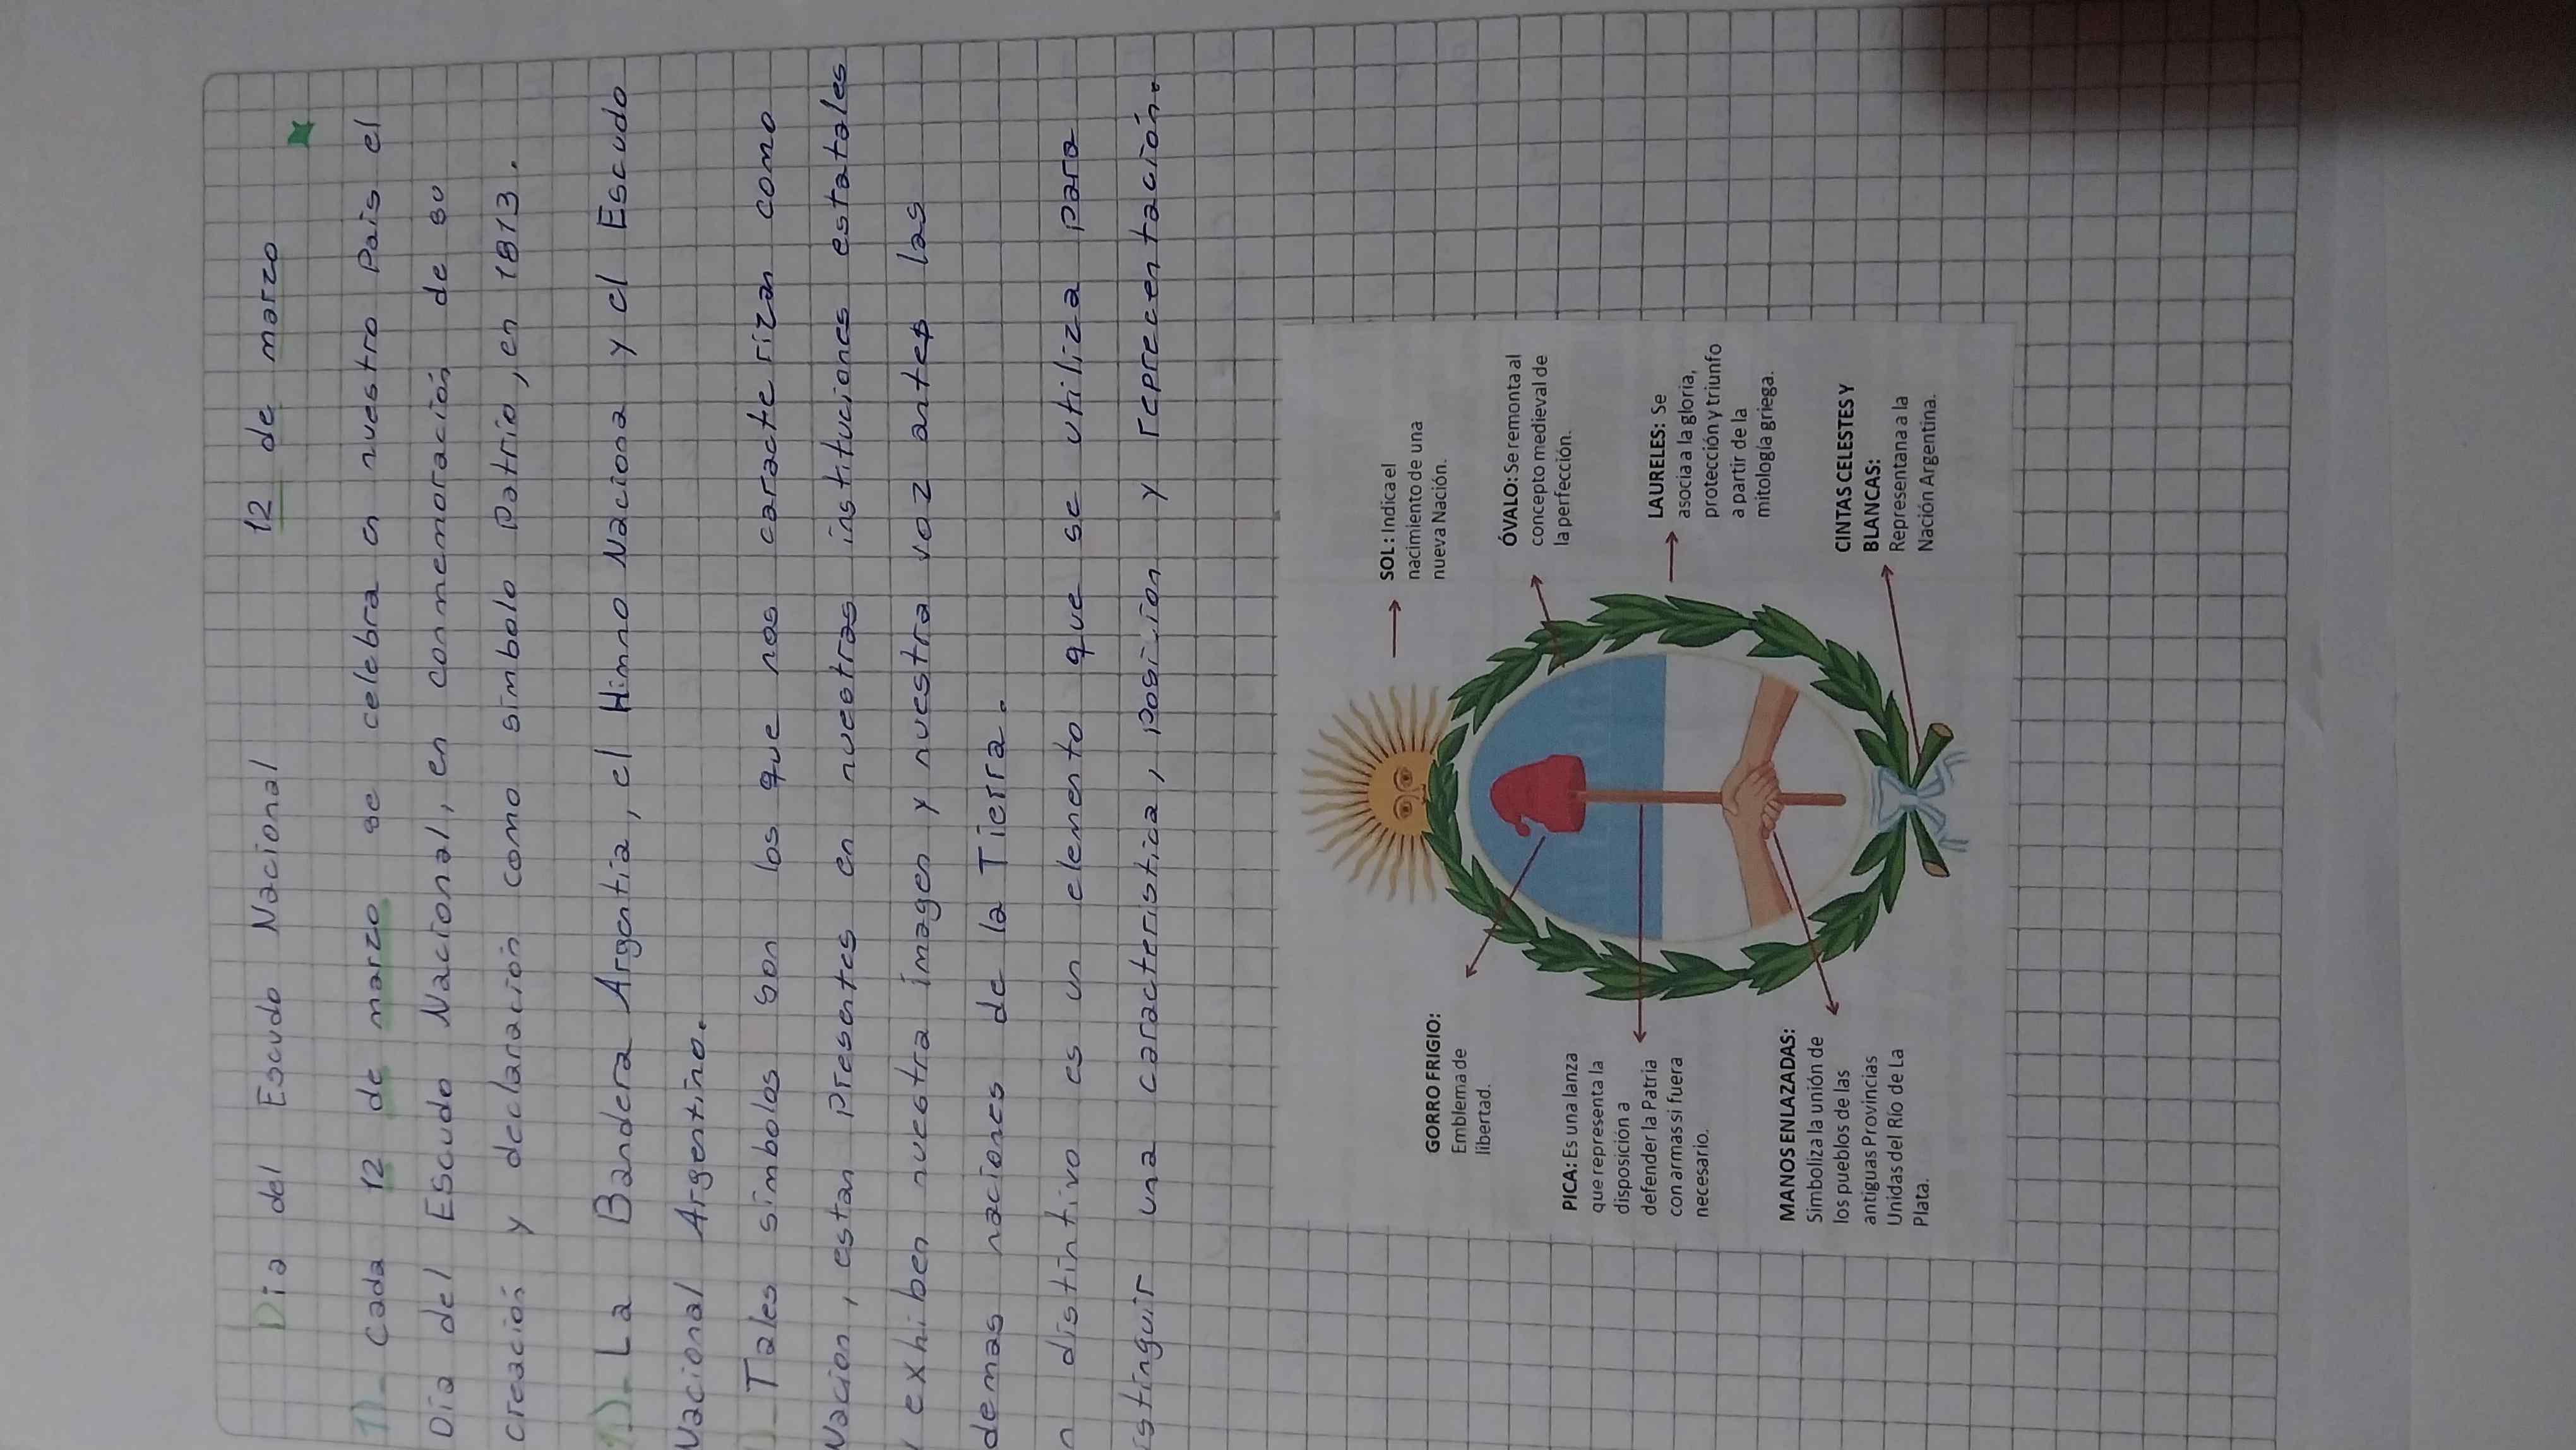 Dia del Escudo Nacional 12 de marzo
1)_ Cada 12 de marzo se celebra en nuestro Pais el
Día del Escudo Nacional, en conmemoración de su
creación y declaración como simbolo Patrio, en 1813.
1)_ La Bandera Argentia, el Himno Naciona y el Escudo
Nacional Argentino.
Tales simbolos son los que nos caracterizan como
Nacion, estan Presentes en nuestras instituciones estatales
exhiben nuestra imagen y nuestra voz antes las
demas naciones de la Tierra.
n distintivo es un elemento que se utiliza para
istinguir una caracteristica, posicion y reprecentación.
SOL: Indica el
nacimiento de una
nueva Nación.
ÓVALO: Se remonta al
concepto medieval de
la perfección.
LAURELES: Se
asocia a la gloria,
protección y triunfo
a partir de la
mitología griega.
CINTAS CELESTES Y
BLANCAS:
Representana a la
Nación Argentina.
GORRO FRIGIO:
Emblema de
libertad.
PICA: Es una lanza
que representa la
disposición a
defender la Patria
con armas si fuera
necesario.
MANOS ENLAZADAS:
Simboliza la unión de
los pueblos de las
antiguas Provincias
Unidas del Río de La
Plata.